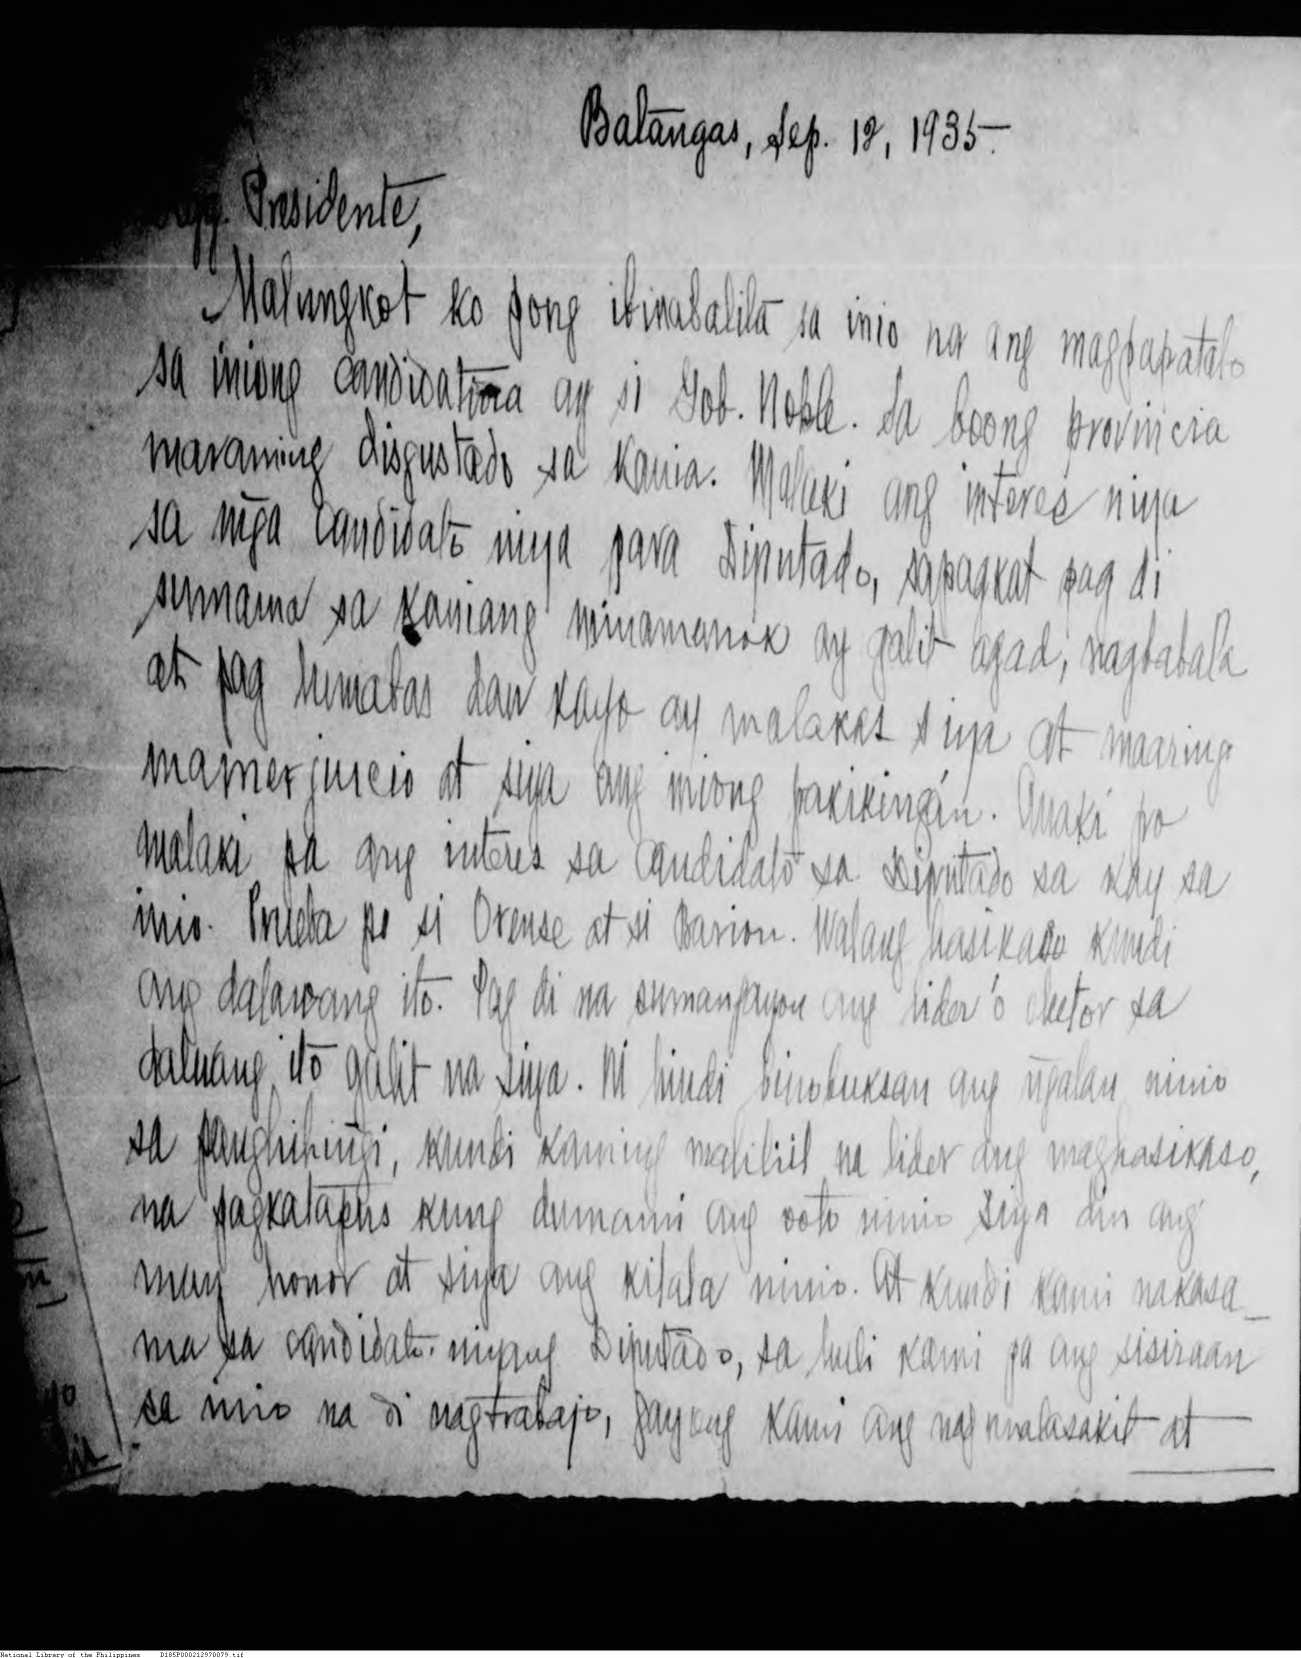 Batangas, Sep. 12, 1935.
Kgg. Presidente,
Malungkot ko pong ibinabalita sa inio na ang magpapatalo
sa iniong candidatura ay si Gob. Noble. Sa boong provincia
maraming disgustado sa kania. Malaki ang interes niya
sa mg̃a candidato niya para Diputado, sapagkat pag di
sumama sa kaniang minamanok ay galit agad, nagbabala
at pag lumabas daw kayo ay malakas siya at maaring
mamerjuicio at siya ang iniong pakikingan. Anaki po
malaki pa ang interes sa candidato sa Diputado sa kay sa
inio. Prueba po si Orense at si Barion. Walang hasikaso kundi
ang dalawang ito. Pag di na sumangayon ang lider o elector sa
daluang ito galit na siya. Ni hindi binobuksan ang ng̃alan ninio
sa panghihing̃i, kundi kaming maliliit na lider ang maghasikaso,
na pagkatapus kung dumami ang voto ninio siya din ang
may honor at siya ang kilala ninio. At kundi kami nakasa-
ma sa candidato niyang Diputado, sa huli kami pa ang sisiraan
sa inio na di nagtrabajo, gayong kami ang nagmalasakit at
National Library of the Philippines D185P000212970079.tif